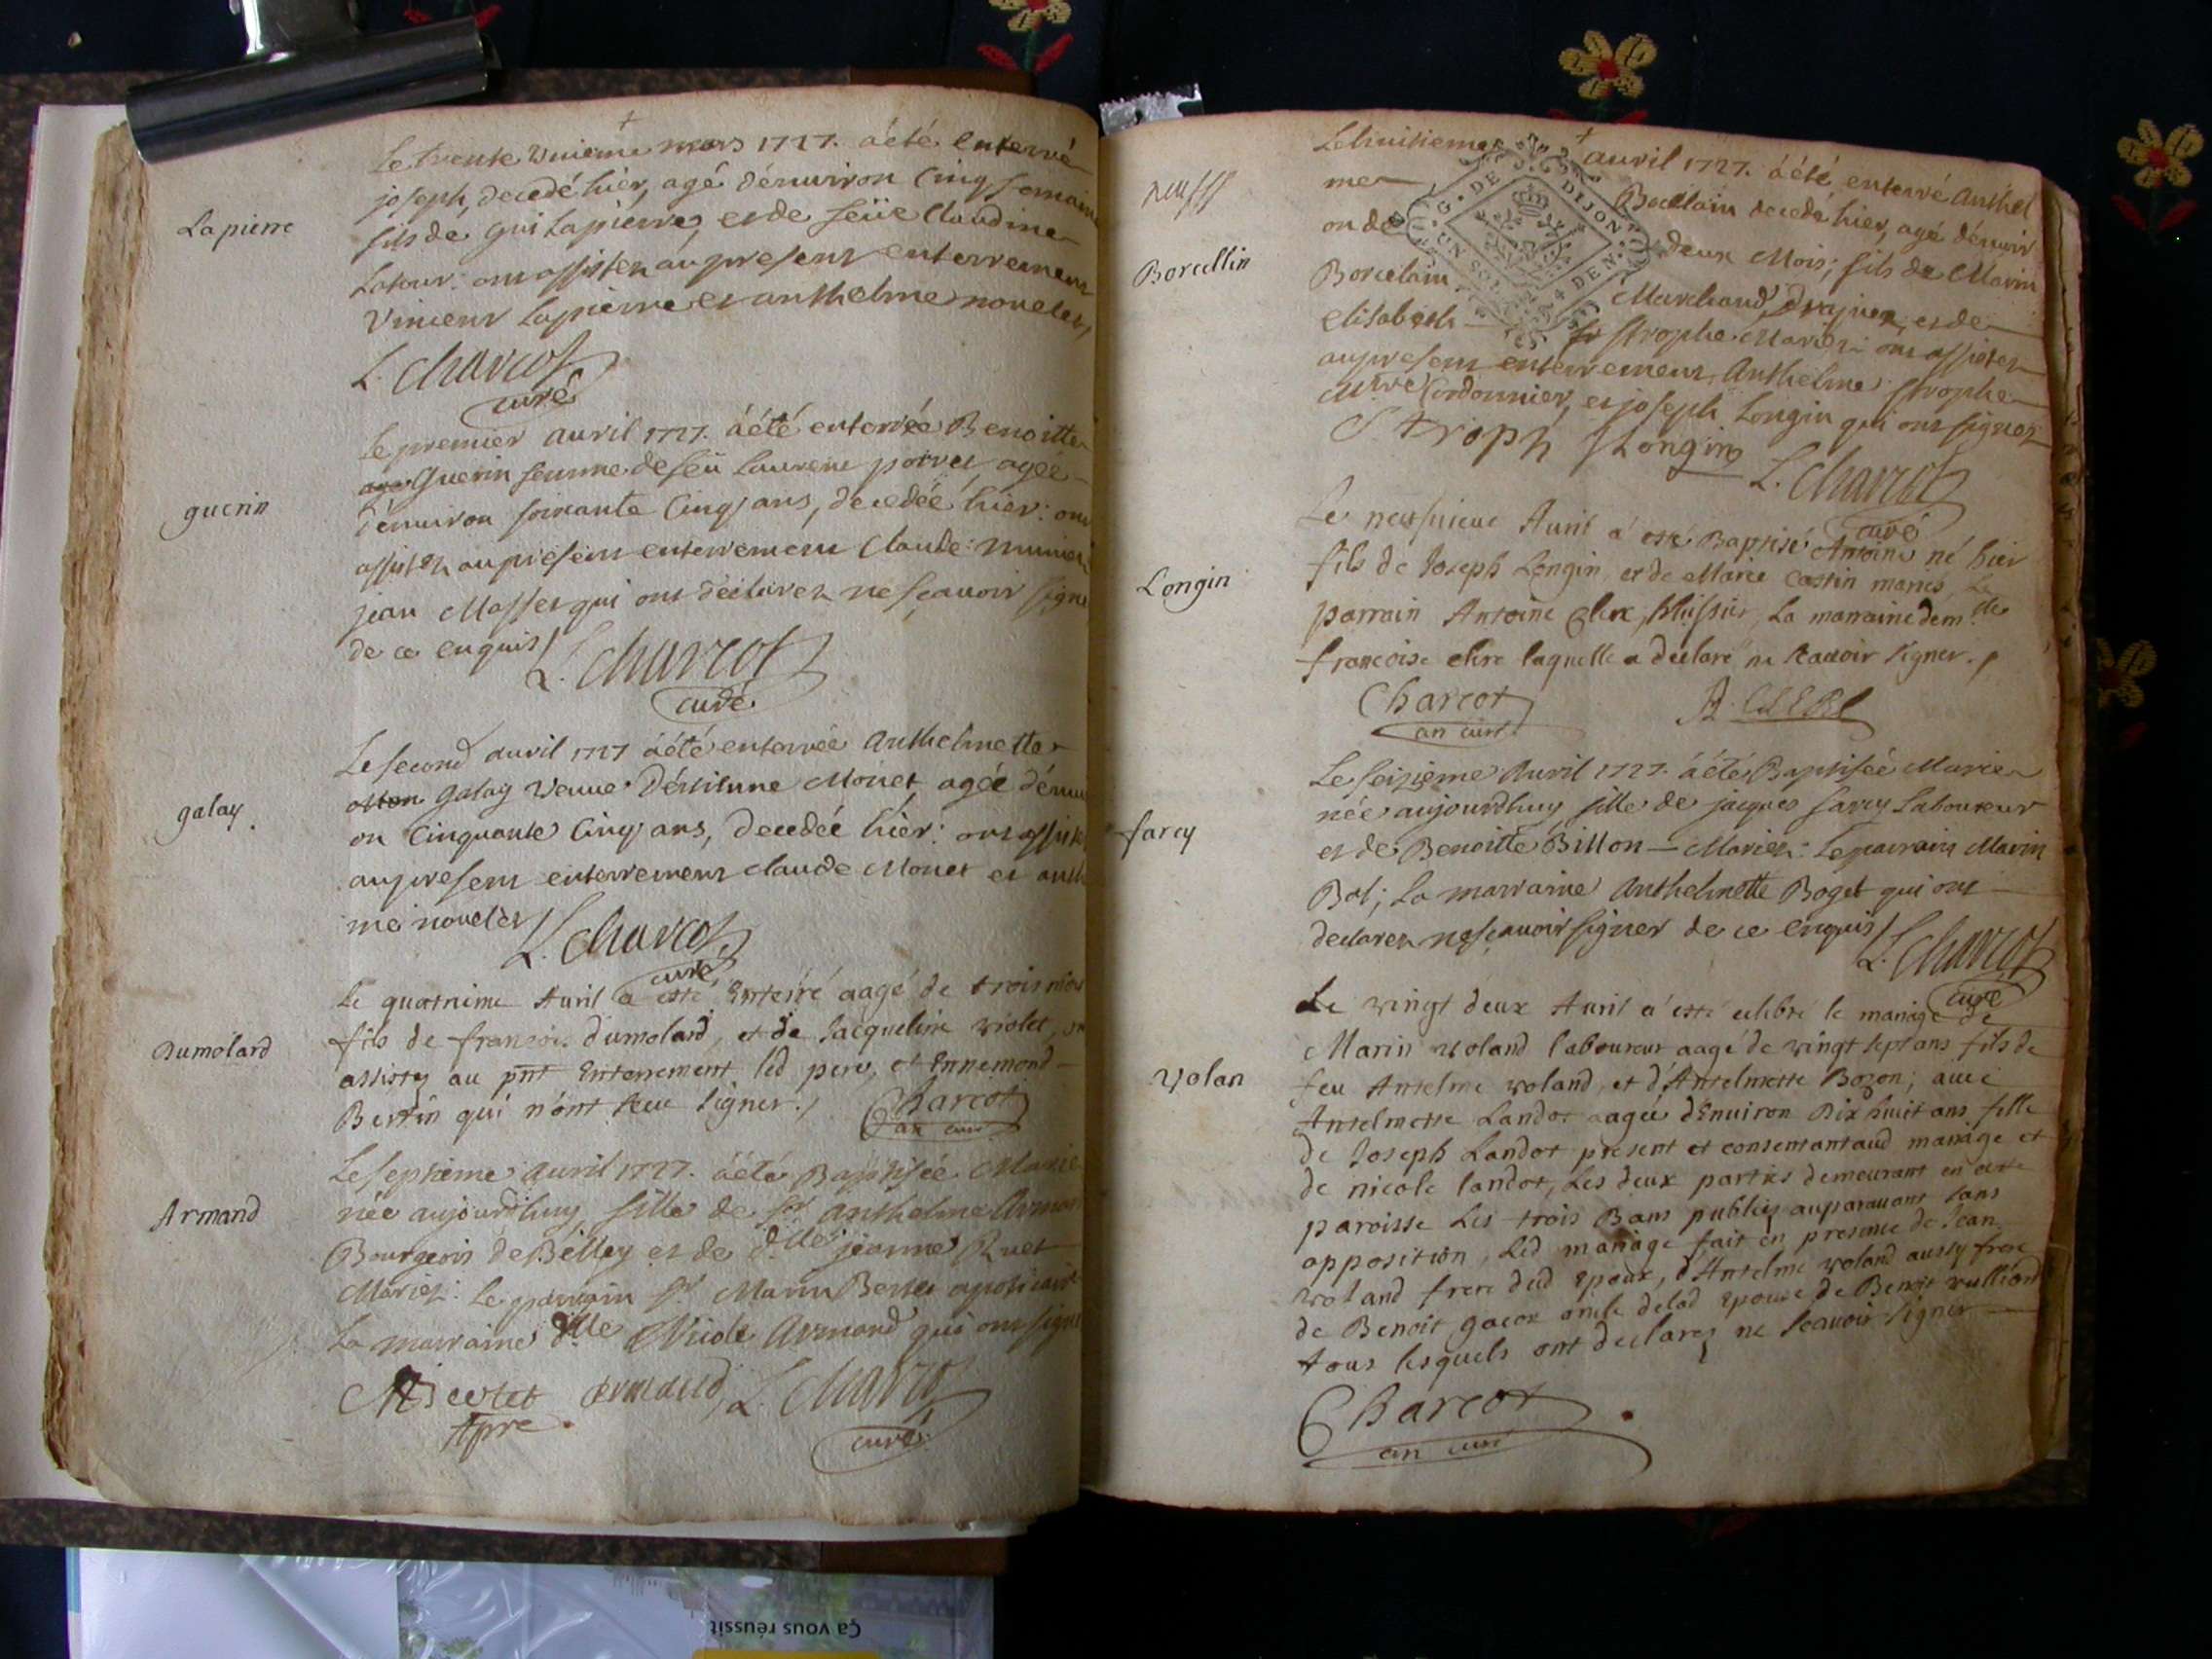 Le trente unieme mars 1727. a été enterré
joseph, decedé hier, agé d'environ cinq semain
Lapierre
fils de gui Lapierre, et de feüe Claudine
Latour: ont assistez au present enterrement
Vincent Lapierre et anthelme novelet,
L. Charcot
curé
Le premier avril 1727. a été enterrée Benoitte
Guerin femme de feu Laurent poivet, agée
guerin
d'environ soixante cinq ans, decedée hier: ont
assistez au present enterrement Claude munier
jean Masset qui ont déclarez ne sçavoir signe
de ce enquis
L. Charcot
curé
Le second avril 1727 a été enterrée Anthelmette
galay veuve d'Estienne Monet, agée d'envi
galay
on cinquante cinq ans, decedée hier: ont assisté
au present enterrement claude Monet et anth
me novelet
L. Charcot
curé
Le quatrieme Avril a esté Enterré aagé de trois mois
fils de francois dumolard, et de Jacqueline violet, on
Dumolard
assistez au pnt Enterrement led pere, et Ennemond
Bertin qui n'ont sceu signer.
Charcot
an curé
Le septieme avril 1727. a été Baptisée Marie
née aujourd'huy, fille de sr. anthelme Arman
Armand
Bourgeois de Belley et de dlle jeanne
Mariez: Le parrain sr. Marin apoticaire
La marraine dlle Nicole Armand qui ont signé
armand L. Charcot
Apre
curé
Le huitieme avril 1727. a été enterré Anthel
me Borcelain decedé hier, agé d'envir
on de deux Mois; fils de Marin
Borcellin
Borcelain Marchand Drapier, et de
elisabeth strophe Mariez: ont assistez
au present enterrement, Anthelme strophe
Cordonnier, et joseph Longin qui ont signez
Stroph JLongin
L. Charcot
curé
Le neufvieme Avril a esté Baptisé Antoine né hier
fils de Joseph Longin, et de Marie Castin mariés, Le
Longin
parrain Antoine Clerc, huissier, La marraine demlle
francoise clerc laquelle a déclaré ne scavoir signer.
Charcot
an curé
Le seizieme Avril 1727. a été Baptisée Marie
née aujourdhuy, fille de jacques farcy Laboureur
farcy
et de Benoitte Billon Mariez: Le parrain Marin
Bol; La marraine Anthelmette Boget qui ont
declarez ne sçavoir signer de ce enquis
L. Charcot
curé
Le vingt deux Avril a esté celebré le mariage de
Marin voland laboureur aagé de vingt sept ans fils de
Volan
feu Antelme voland, et d'Antelmette Bozon; avec
Antelmette Landot aagée d'Environ Dix huit ans fille
de Joseph Landot present et consentant aud mariage et
de nicole landot, Les deux parties demeurant en cette
paroisse Les trois Bans publiez auparavant sans
opposition, Led mariage fait en presence de Jean
voland frere dud Epoux, d'Antelme voland aussy frere
de Benoit gacon oncle delad Epouse, de Benoit vulliod
tous lesquels ont declarez ne scavoir signer
Charcot
an curé
G. DE DIJON
UN SOL
Ça vous réussit